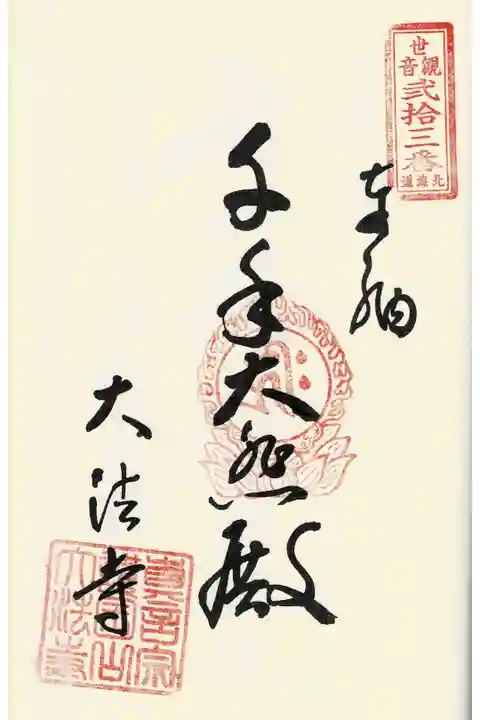 北海道
世音觀
弐拾三番
奉納
千手大悲殿
大法寺
真言宗
大法寺